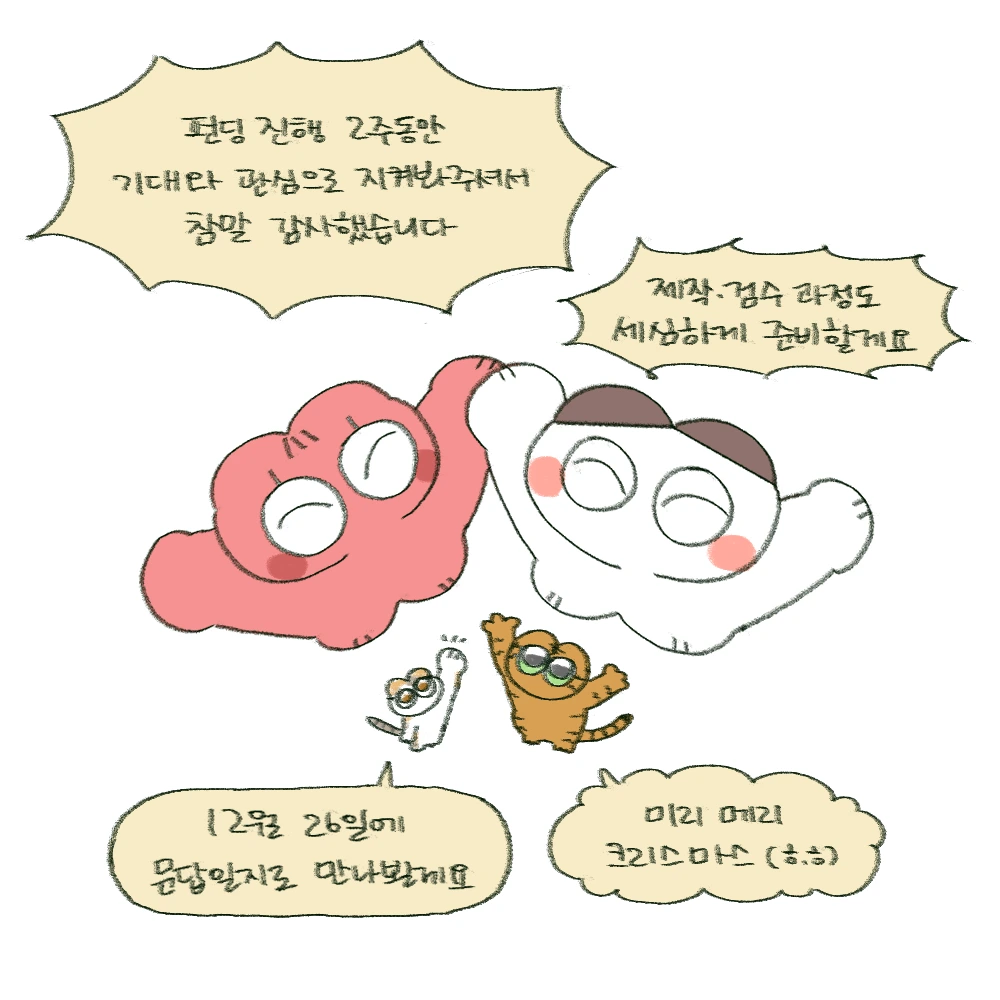 펀딩 진행 2주동안
기대와 관심으로 지켜봐주셔서
참말 감사했습니다
제작·검수 과정도
세심하게 준비할게요
12월 26일에
문답일지로 만나뵐게요
미리 메리
크리스마스 (ㅎ.ㅎ)